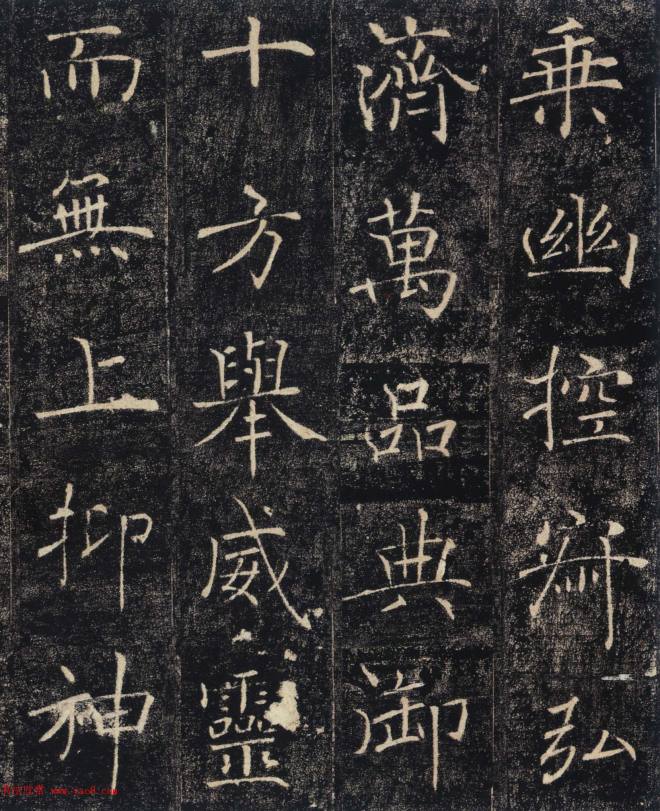 乘幽控寂弘
濟萬品典御
十方舉威靈
而無上抑神
www.yac8.com